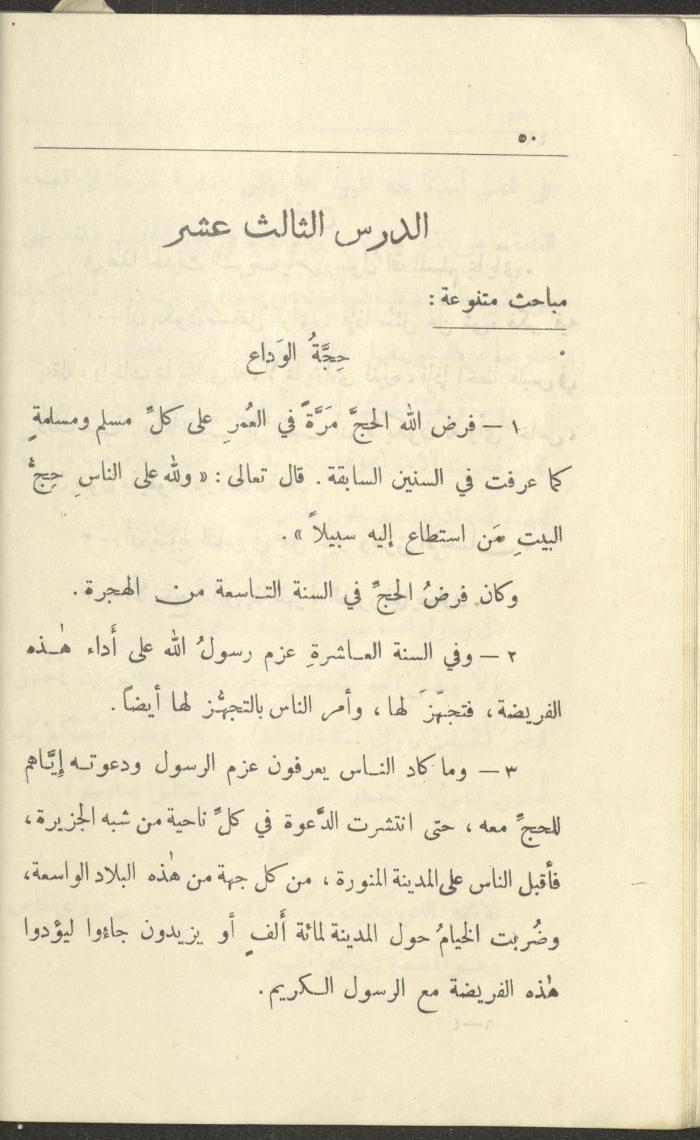 ٥٠
الدرس الثالث عشر
مباحث متنوعة :
حِجَّةُ الوَداع
١ — فرض الله الحجَّ مَرَّةً في العُمُرِ على كلِّ مسلم ومسلمةٍ
كما عرفت في السنين السابقة . قال تعالى : « ولله على الناسِ حِجُّ
البيتِ مَن استطاع إليه سبيلاً » .
وكان فرضُ الحجِّ في السنة التاسعة من الهجرة .
٢ — وفي السنة العاشرةِ عزم رسولُ الله على أَداء هٰذه
الفريضة ، فتجهّزَ لها ، وأمر الناس بالتجهُّز لها أيضاً .
٣ — وما كاد الناس يعرفون عزم الرسول ودعوته إيَّاهم
للحجِّ معه ، حتى انتشرت الدَّعوة في كلِّ ناحية من شبه الجزيرة ،
فأقبل الناس على المدينة المنورة ، من كل جهة من هٰذه البلاد الواسعة ،
وضُربت الخيامُ حول المدينة لمائة أَلفٍ أو يزيدون جاءوا ليؤدوا
هٰذه الفريضة مع الرسول الكريم .